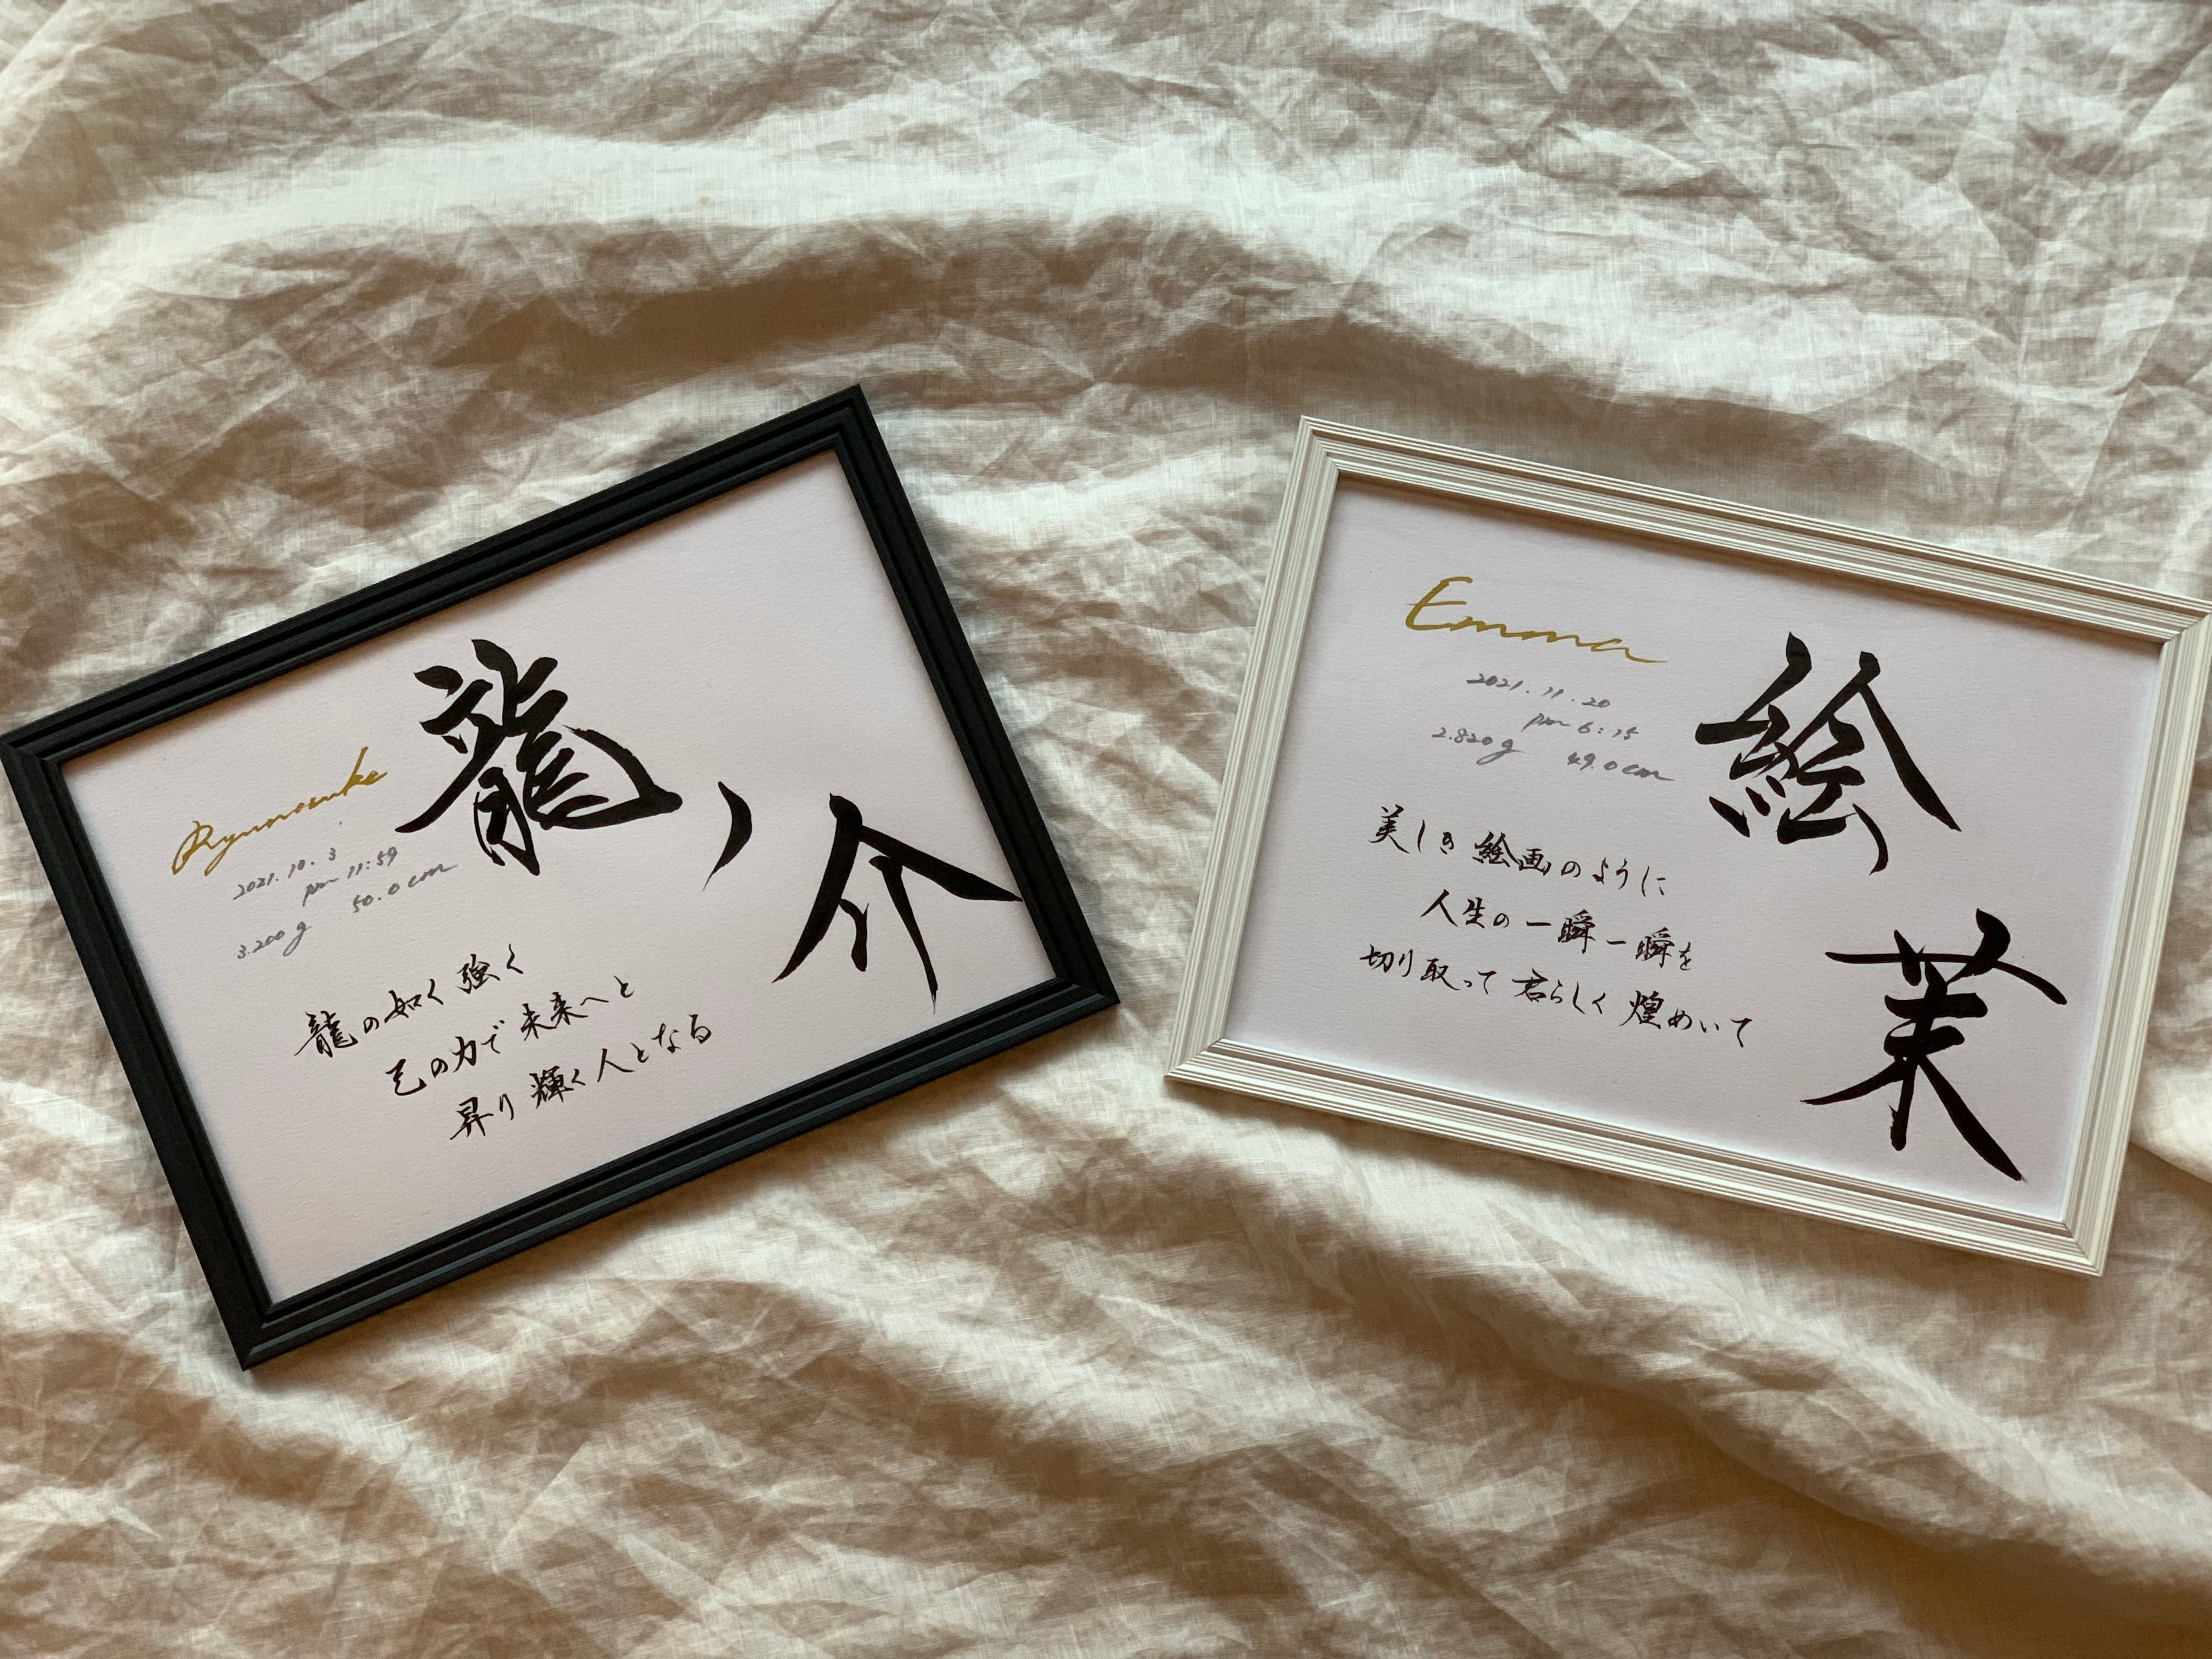 龍ノ介
Ryunosuke
2021.10.3
pm 11:59
3.200g 50.0cm
龍の如く強く
己の力で未来へと
昇り輝く人となる
絵茉
Emma
2021.11.20
pm 6:15
2.820g 49.0cm
美しき絵画のように
人生の一瞬一瞬を
切り取って君らしく煌めいて